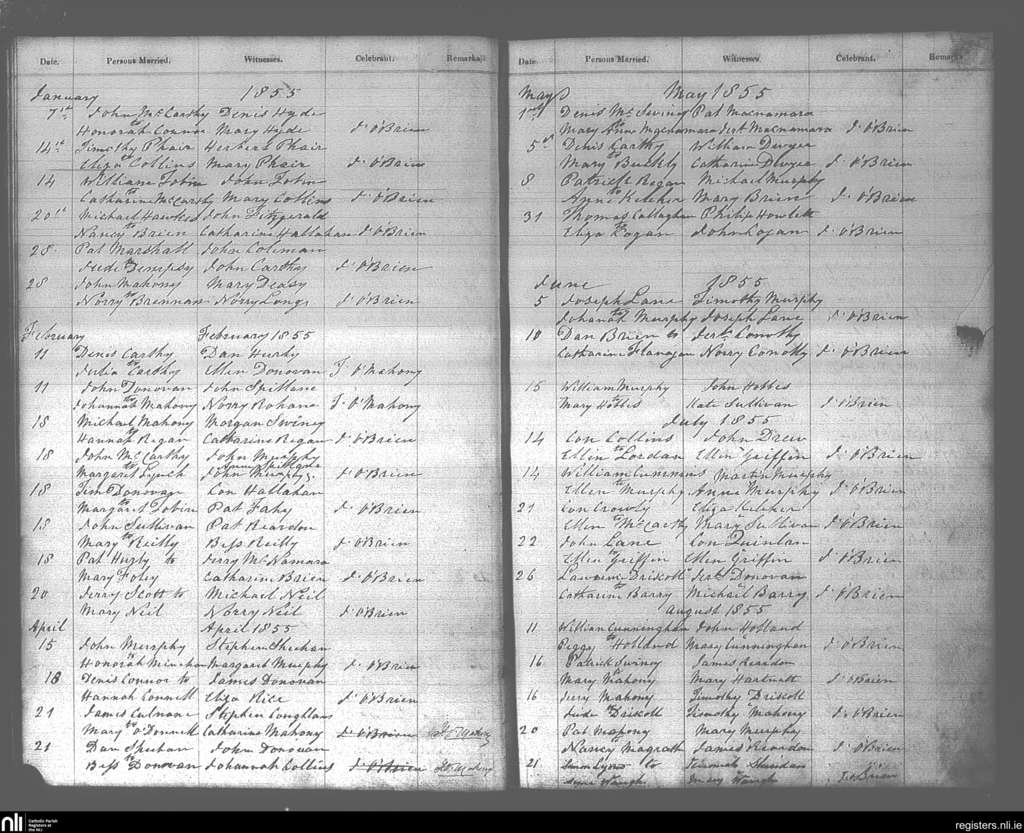 Date. Persons Married. Witnesses. Celebrant. Remarks.
January 1855
7th John McCarthy Denis Hyde
Honorah to Connor Mary Hyde J. O'Brien
14th Timothy Phair Herbert Phair
Eliza to Collins Mary Phair J. O'Brien
14 William Tobin John Tobin
Catharine to McCarthy Mary Collins J. O'Brien
20th Michael Hawkes John Fitzgerald
Nancy to Brien Catharine Hallahan J. O'Brien
28 Pat Marshall John Coleman
Jude to Dempsy John Carthy J. O'Brien
28 John Mahony Mary Deasy
Norry to Brennan Norry Long J. O'Brien
February February 1855
11 Denis Carthy Dan Hurly
Julia to Carthy Ellen Donovan T. O'Mahony
11 John Donovan John Spillane
Johannah to Mahony Norry Rohane T. O'Mahony
18 Michael Mahony Morgan Swiney
Hannah to Regan Catharine Regan J. O'Brien
18 John McCarthy John Murphy
Margaret to Lynch John Murphy J. O'Brien
18 Tim Donovan Con Hallahan
Margaret to Tobin Pat Fahy J. O'Brien
18 John Sullivan Pat Reardon
Mary to Reilly Bess Reilly J. O'Brien
18 Pat Hurly to Jerry McNamara
Mary Foley Catharine Brien J. O'Brien
20 Jerry Scott to Michael Neil
Mary Neil Norry Neil J. O'Brien
April April 1855
15 John Murphy Stephen Sheehan
Honorah to Minehan Margaret Murphy J. O'Brien
18 Denis Connor to James Donovan
Hannah Connell Eliza Rice J. O'Brien
21 James Culnane Stephen Coughlan
Mary to O'Donnell Catharine Mahony J. O'Brien
21 Dan Sheehan John Donovan
Bess to Donovan Johannah Collins J. O'Brien
Date. Persons Married. Witnesses. Celebrant. Remarks
May May 1855
1st Denis McSwiney Pat Macnamara
Mary Anne Macnamara Jert Macnamara J. O'Brien
5th Denis Carthy William Dwyer
Mary to Buckly Catharine Dwyer J. O'Brien
8 Patrick Regan Michael Murphy
Anne to Keleher Mary Brien J. O'Brien
31 Thomas Callaghan Philip Howlett
Eliza to Logan John Logan J. O'Brien
June 1855
5 Joseph Lane Timothy Murphy
Johanah to Murphy Joseph Lane J. O'Brien
10 Dan Brien to Jert Conolly
Catharine Flanagan Norry Conolly J. O'Brien
15 William Murphy John Hobbs
Mary to Hobbs Kate Sullivan J. O'Brien
July 1855
14 Con Collins John Drew
Ellen to Lordan Ellen Griffin J. O'Brien
14 William Cummins Martin Murphy
Ellen to Murphy Anne Murphy J. O'Brien
21 Con Crowly Eliza Keleher
Ellen to McCarthy Mary Sullivan J. O'Brien
22 John Lane Con Quinlan
Ellen to Griffin Ellen Griffin J. O'Brien
26 Laurence Driscoll Jert Donovan
Catharine to Barry Michael Barry J. O'Brien
August 1855
11 William Cunningham John Holland
Peggy to Holland Mary Cunningham J. O'Brien
16 Patrick Swiney James Reardon
Mary to Mahony Mary Hartnett J. O'Brien
16 Jerry Mahony Timothy Driscoll
Jude to Driscoll Timothy Mahony J. O'Brien
20 Pat Mahony Mary Murphy
Nancy to Magrath James Riordan J. O'Brien
21 Lyons to Jeremiah Sheridan
Anne Waugh Mary Waugh J. O'Brien
nli Catholic Parish Registers at the NLI
registers.nli.ie